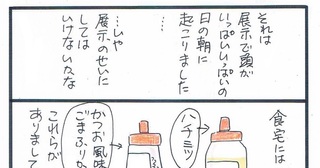 それは
展示で頭が
いっぱいいっぱいの
日の朝に
起こりました
…
…いや
展示のせいに
しては
いけないんだな
食宅には
ハチミツ
かつお風味
ごまふりかけ
これらが
ありまして